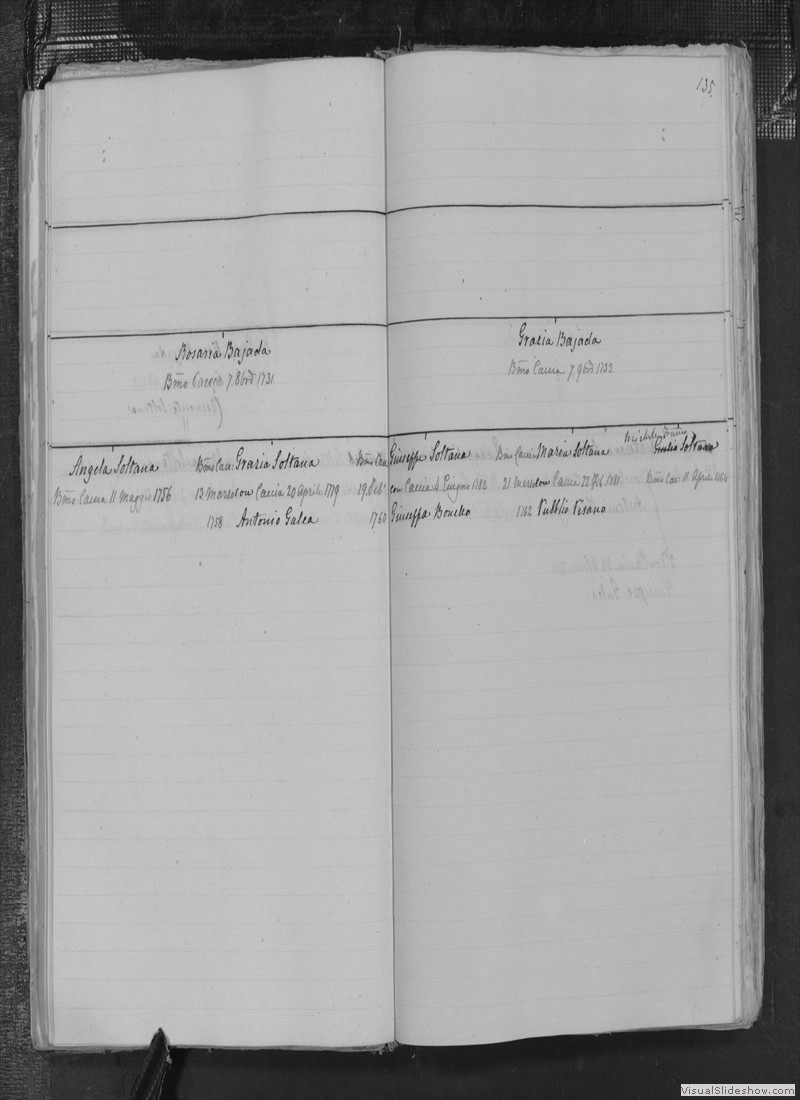 135
Rosaria Bajada
Bmo Caccia 7 8bre 1731
Grazia Bajada
Bmo Caccia 7 9bre 1733
Angela Soltana
Bmo Caccia 11 Maggio 1756
Bmo Cac: Grazia Soltana
13 Marzo con Caccia 20 Aprile 1779
1758 Antonio Galea
Bmo Cac: Giuseppe Soltana
19 Feb. con Caccia 4 Giugno 1782
1760 Giuseppa
Bmo Caccia Maria Soltana
21 Marzo con Caccia 1781
1762 Pubblio Pisano
Giulio Soltana
Bmo Cac: 11 Aprile 1764
VisualSlideshow.com